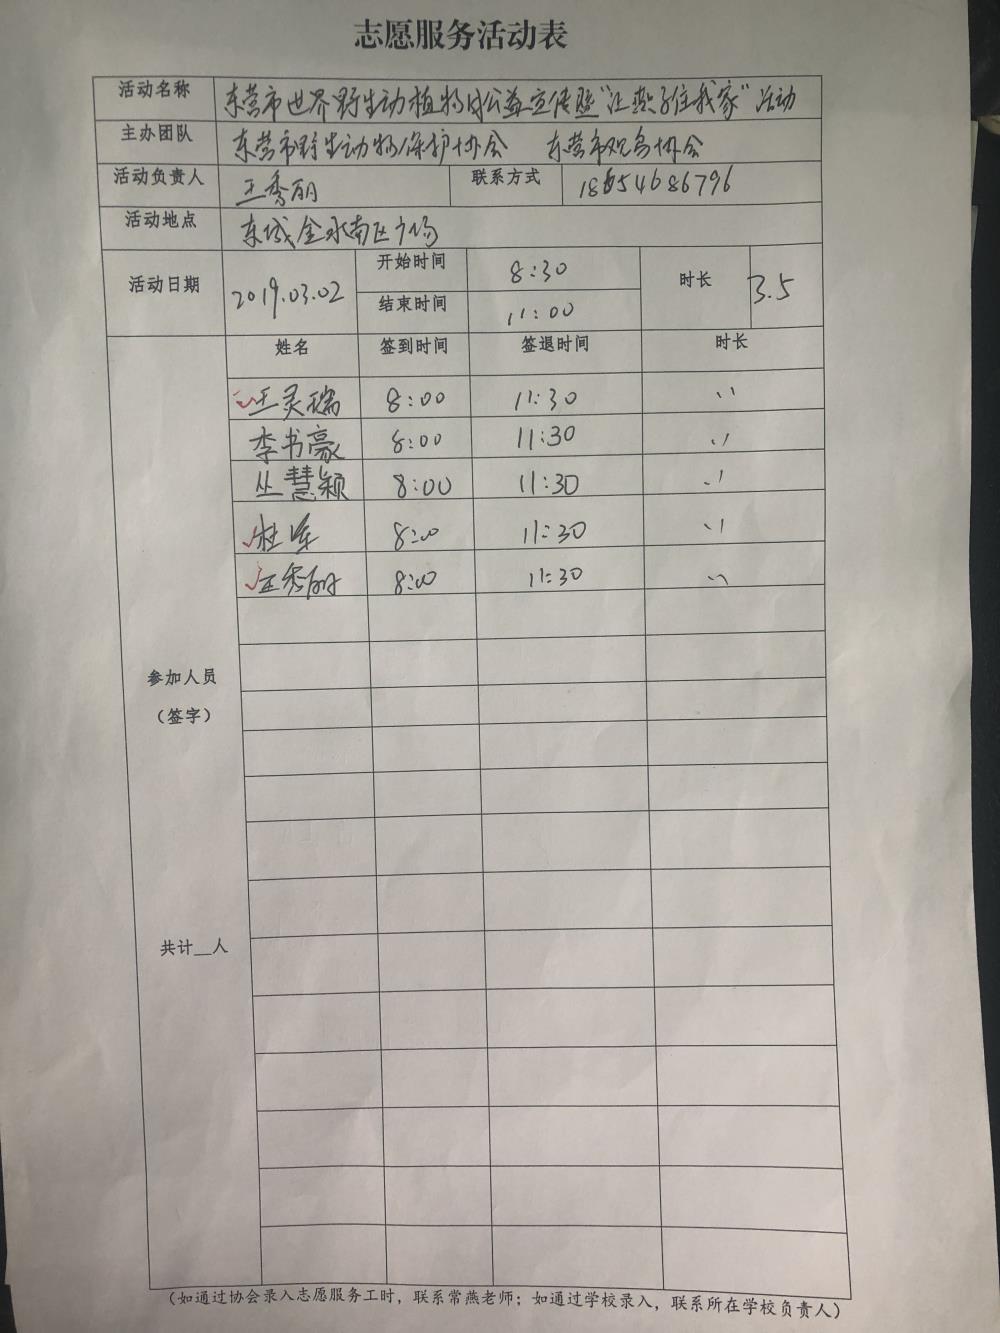 志愿服务活动表
活动名称 东营市世界野生动植物日公益宣传暨“让燕子住我家”活动
主办团队 东营市野生动物保护协会 东营市观鸟协会
活动负责人 王秀丽 联系方式 18654686796
活动地点 东城金水南区广场
活动日期 2019.03.02 开始时间 8:30 时长 3.5
结束时间 11:00
姓名 签到时间 签退时间 时长
王灵瑞 8:00 11:30 〃
李书豪 8:00 11:30 〃
丛慧颖 8:00 11:30 〃
杜军 8:00 11:30 〃
王秀丽 8:00 11:30 〃
参加人员
（签字）
共计__人
（如通过协会录入志愿服务工时，联系常燕老师；如通过学校录入，联系所在学校负责人）